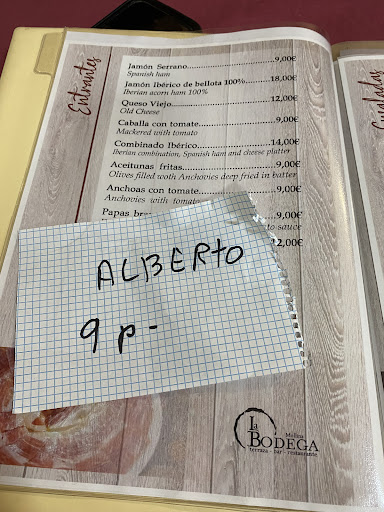 Entrantes
Jamón Serrano 9,00€
Spanish ham
Jamón Ibérico de bellota 100% 18,00€
Iberian acorn ham 100%
Queso Viejo 12,00€
Old Cheese
Caballa con tomate 9,00€
Mackered with tomato
Combinado Ibérico 14,00€
Iberian combination, Spanish ham and cheese platter
Aceitunas fritas 9,00€
Olives filled woth Anchovies deep fried in batter
Anchoas con tomate 9,00€
Anchovies with tomato
Papas 9,00€
to sauce
12,00€
ALBERTO
9 p-
La
Molina
BODEGA
terraza - bar - restaurante